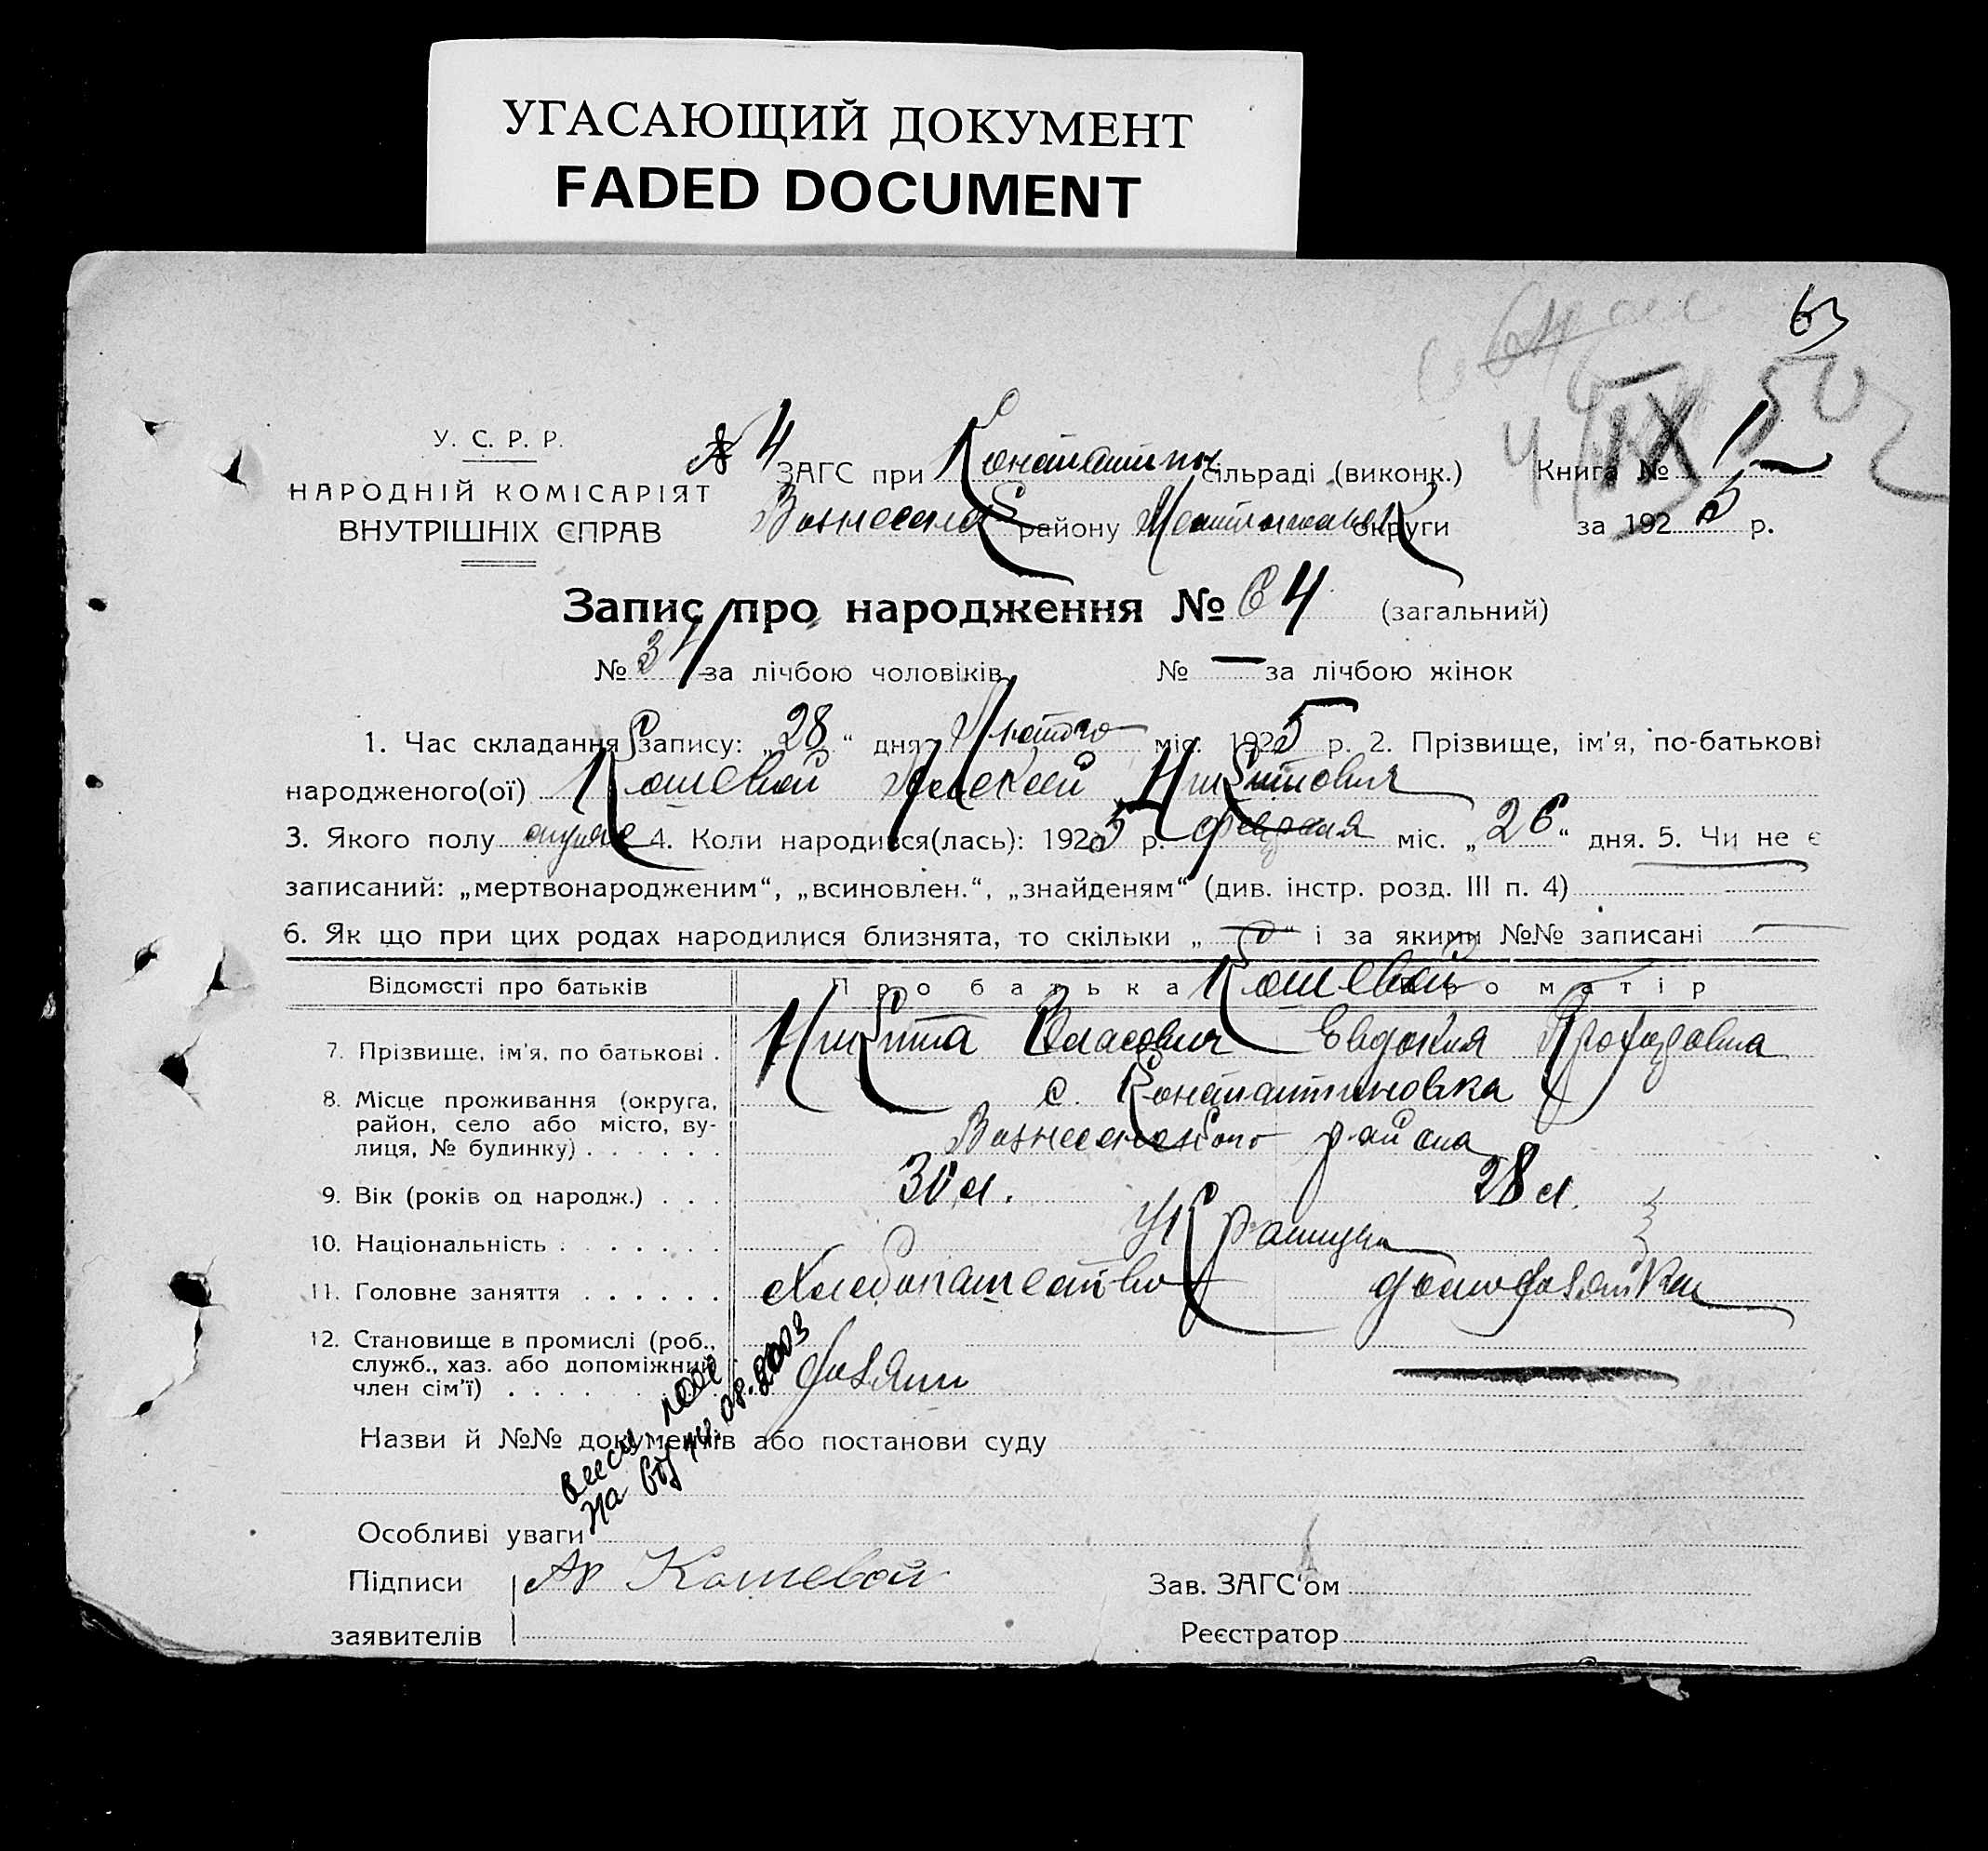 УГАСАЮЩИЙ ДОКУМЕНТ
FADED DOCUMENT
63
У. С. Р. Р.
НАРОДНІЙ КОМІСАРІЯТ
ВНУТРІШНІХ СПРАВ
№ 4 ЗАГС при Константин сільраді (виконк.)
Вознесенск району округи
Книга № 1
за 1925 р.
Запис про народження № 64 (загальний)
№ 34 за лічбою чоловіків № — за лічбою жінок
1. Час складання запису: „28“ дня Лютого міс. 1925 р. 2. Прізвище, ім'я, по-батькові
народженого(ої) Кошевой Алексей Никитович
3. Якого полу 4. Коли народився(лась): 1925 р. февраля міс. „26“ дня. 5. Чи не є
записаний: „мертвонародженим“, „всиновлен.“, „знайденям“ (див. інстр. розд. III п. 4)
6. Як що при цих родах народилися близнята, то скільки „ “ і за якими №№ записані —
Відомості про батьків Про батька Про матір
Кошевой
7. Прізвище, ім'я, по батькові . Никита Власович Евдокия
8. Місце проживання (округа, район, село або місто, вулиця, № будинку) . . . . . . с. Константиновка
Вознесенского района
9. Вік (років од народж.) . . . 30 л. 28 л.
10. Національність : . . . . . . Украинцы
11. Головне заняття . . . . . . Хлебопашество домохозяйка
12. Становище в промислі (роб., служб., хаз. або допоміжний член сім'ї) . . . . хозяин
Назви й №№ документів або постанови суду
на 08.2003
Особливі уваги
Підписи Кошевой
заявителів
Зав. ЗАГС'ом
Реєстратор